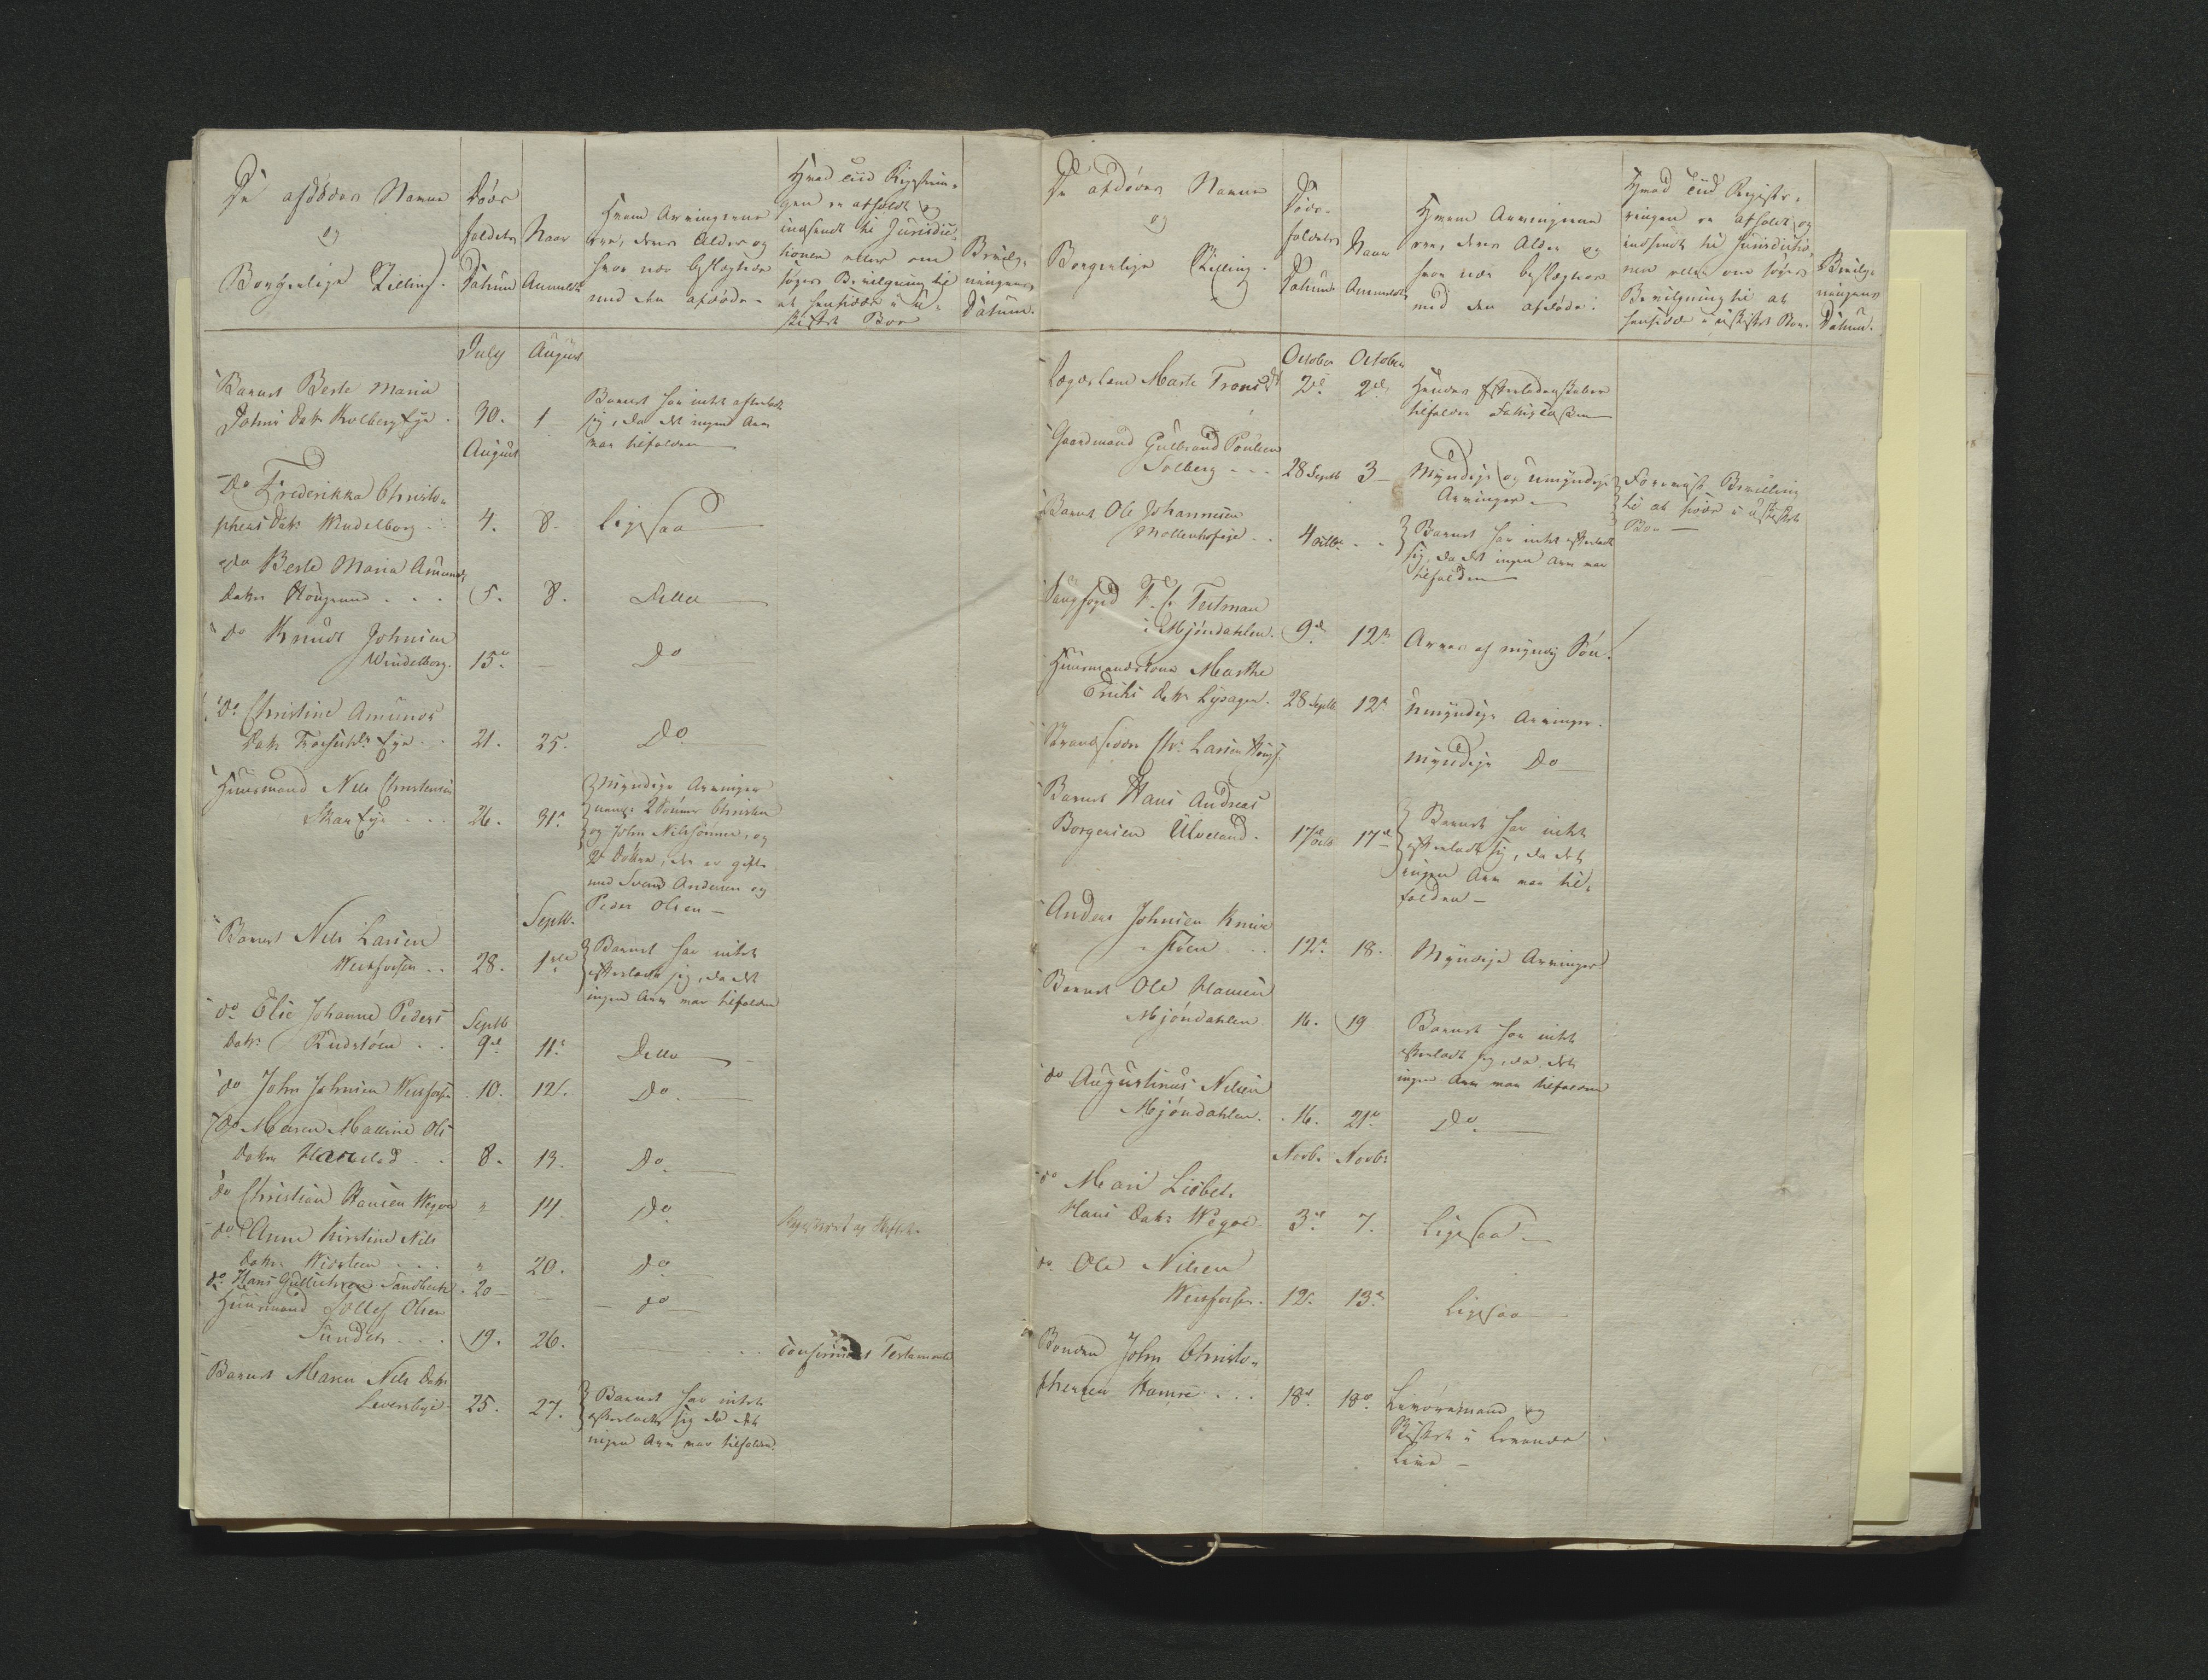 De afdødes Navne
og
Borgerlige Stilling.
Døds
faldets
Datum
Naar
Anmeldt
Hvem Arvingerne
ere, deres Alder og
hvor nær beslægtede
med den afdøde.
Hvad Tiid Registrin-
gen er afholdt og
indsendt til Jurisdic-
tionen eller om
søges Bevilgning til
at hensidde i u-
skiftet Boe
Bevilg-
ningens
Datum.
July August
Barnet Berte Maria
Johns Datr Kolberg Eje. 30. 1
Barnet har intet efterladt
sig, da det ingen Arv
var tilfalden
August
Do Frederikka Christo-
phers Datr Windelborg 4. 8. Ligesaa
do Berte Maria Amunds
Datter Hougsund 5. 8. Detto
do Knud Johnsen
Windelborg. 15. Do
do Christine Amunds
Datr Eje 21. 25. Do
Huusmand Nils Christensen
Skar Eje 26. 31.
Myndige Arvinger
2 Sønner Christen
og John Nilssønner, og
2 Døttre, der er gifte
med Svend Andersen og
Peder Olsen
Septb.
Barnet Nils Larsen
Westfossen 28. 1ste
Barnet har intet
efterladt sig, da det
ingen Arv var tilfalden
do Elie Johanne Peders Septb
Datr 9de 11. Detto
do John Johnsen Westfossen 10. 12. Do
do Maren Mallene Ols
Datter Harestad 8. 13. Do
do Christian Hansen Wegoe " 14 Do
do Anne Kirstine Nils
Datr " 20. Do
do Hans Gullichsen Sandbech 20 do
Huusmand Sollef Olsen
Sundet 19. 26. confirmeret Testamente
Barnet Maren Nils Datr
Leversbye 25. 27.
Barnet har intet
efterladt sig da det
ingen Arv var tilfalden.
De afdødes Navne
og
Borgerlige Stilling.
Døds-
faldets
Datum
Naar
Anmeldt
Hvem Arvingerne
ere, deres Alder og
hvor nær beslægtet
med den afdøde.
Hvad Tiid Registre-
ringen er afholdt og
indsendt til Jurisdictio-
nen eller om søges
Bevilgning til at
hensidde i uskiftet Boe.
Bevilg-
ningens
Datum.
October October
Lægdslem Marte 2de 2de Hendes Efterladenskaber
tilfalder Fattigkassen
Gaardmand Gulbrand Poulsen
Solberg 28 Septb 3 Myndige og umyndige
Arvinger
Foreviist Bevilling
til at sidde i uskiftet
Boe
Barnet Ole Johannesen
Mollenhofeje 4 Octbr
Barnet har intet efterladt
sig, da det ingen Arv var
tilfalden
Saugfoged F. C. Testman
i Mjøndahlen. 9de 12te Arves af myndig Søn.
Huusmandskone Marthe
Erichs Datr Lysager. 28 Septb 12te Umyndige Arvinger.
Strandsidder Chr. Larsen
Myndige Do
Barnet Hans Andreas
Borgersen Ulveland. 17de Octb 17de
Barnet har intet
efterladt sig, da det
ingen Arv var til-
falden
Anders Johnsen
12te 18. Myndige Arvinger
Barnet Ole Hansen
Mjøndahlen 16. 19
Barnet har intet
efterladt sig, da det
ingen Arv var tilfalden
do Augustinus Nilsen
Mjøndahlen. 16. 21 Do
Novb. Novbr
do Mari Lisbet
Hans Datr Wegoe 3de 7. Ligesaa
do Ole Nilsen
Westfossen. 12. 13 Ligesaa
Bonden John Christo-
phersen 18de 18de Levørsmand og
Skiftet i levende
Live